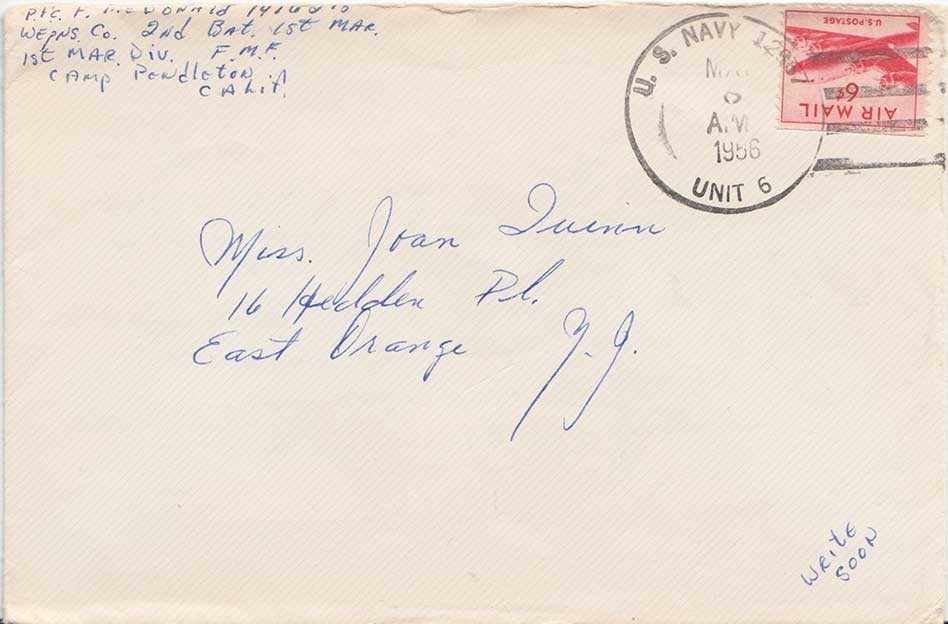 Pfc. F. McDonald
WEPNS. Co. 2nd Bat. 1st MAR.
1st MAR. Div. F.M.F.
CAMP PENDLETON
CALIF.
U.S. NAVY
A.M
1956
UNIT 6
U.S. POSTAGE
6¢
AIR MAIL
Miss. Joan Quinn
16 Hedden Pl.
East Orange N.J.
WRITE
SOON